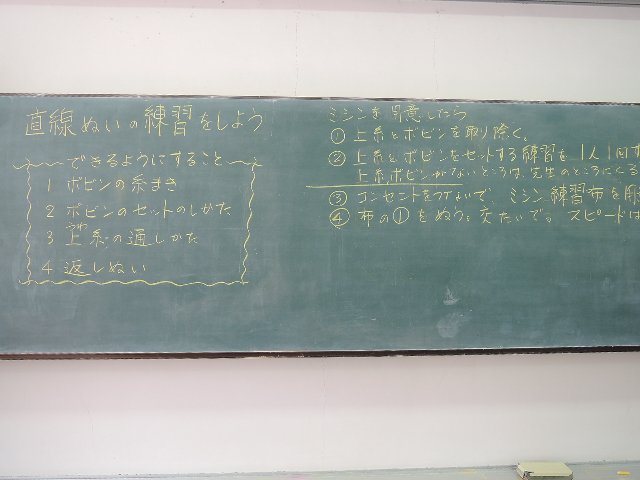 直線ぬいの練習をしよう
できるようにすること
1 ボビンの糸まき
2 ボビンのセットのしかた
3 上糸の通しかた
うわ
4 返しぬい
ミシンを用意したら
① 上糸とボビンを取り除く。
② 上糸とボビンをセットする練習を1人1回す
上糸、ボビンがないところは、先生のところにくる
③ コンセントをつないで、ミシン練習布を用
④ 布の①をぬう。交たいで。スピードは